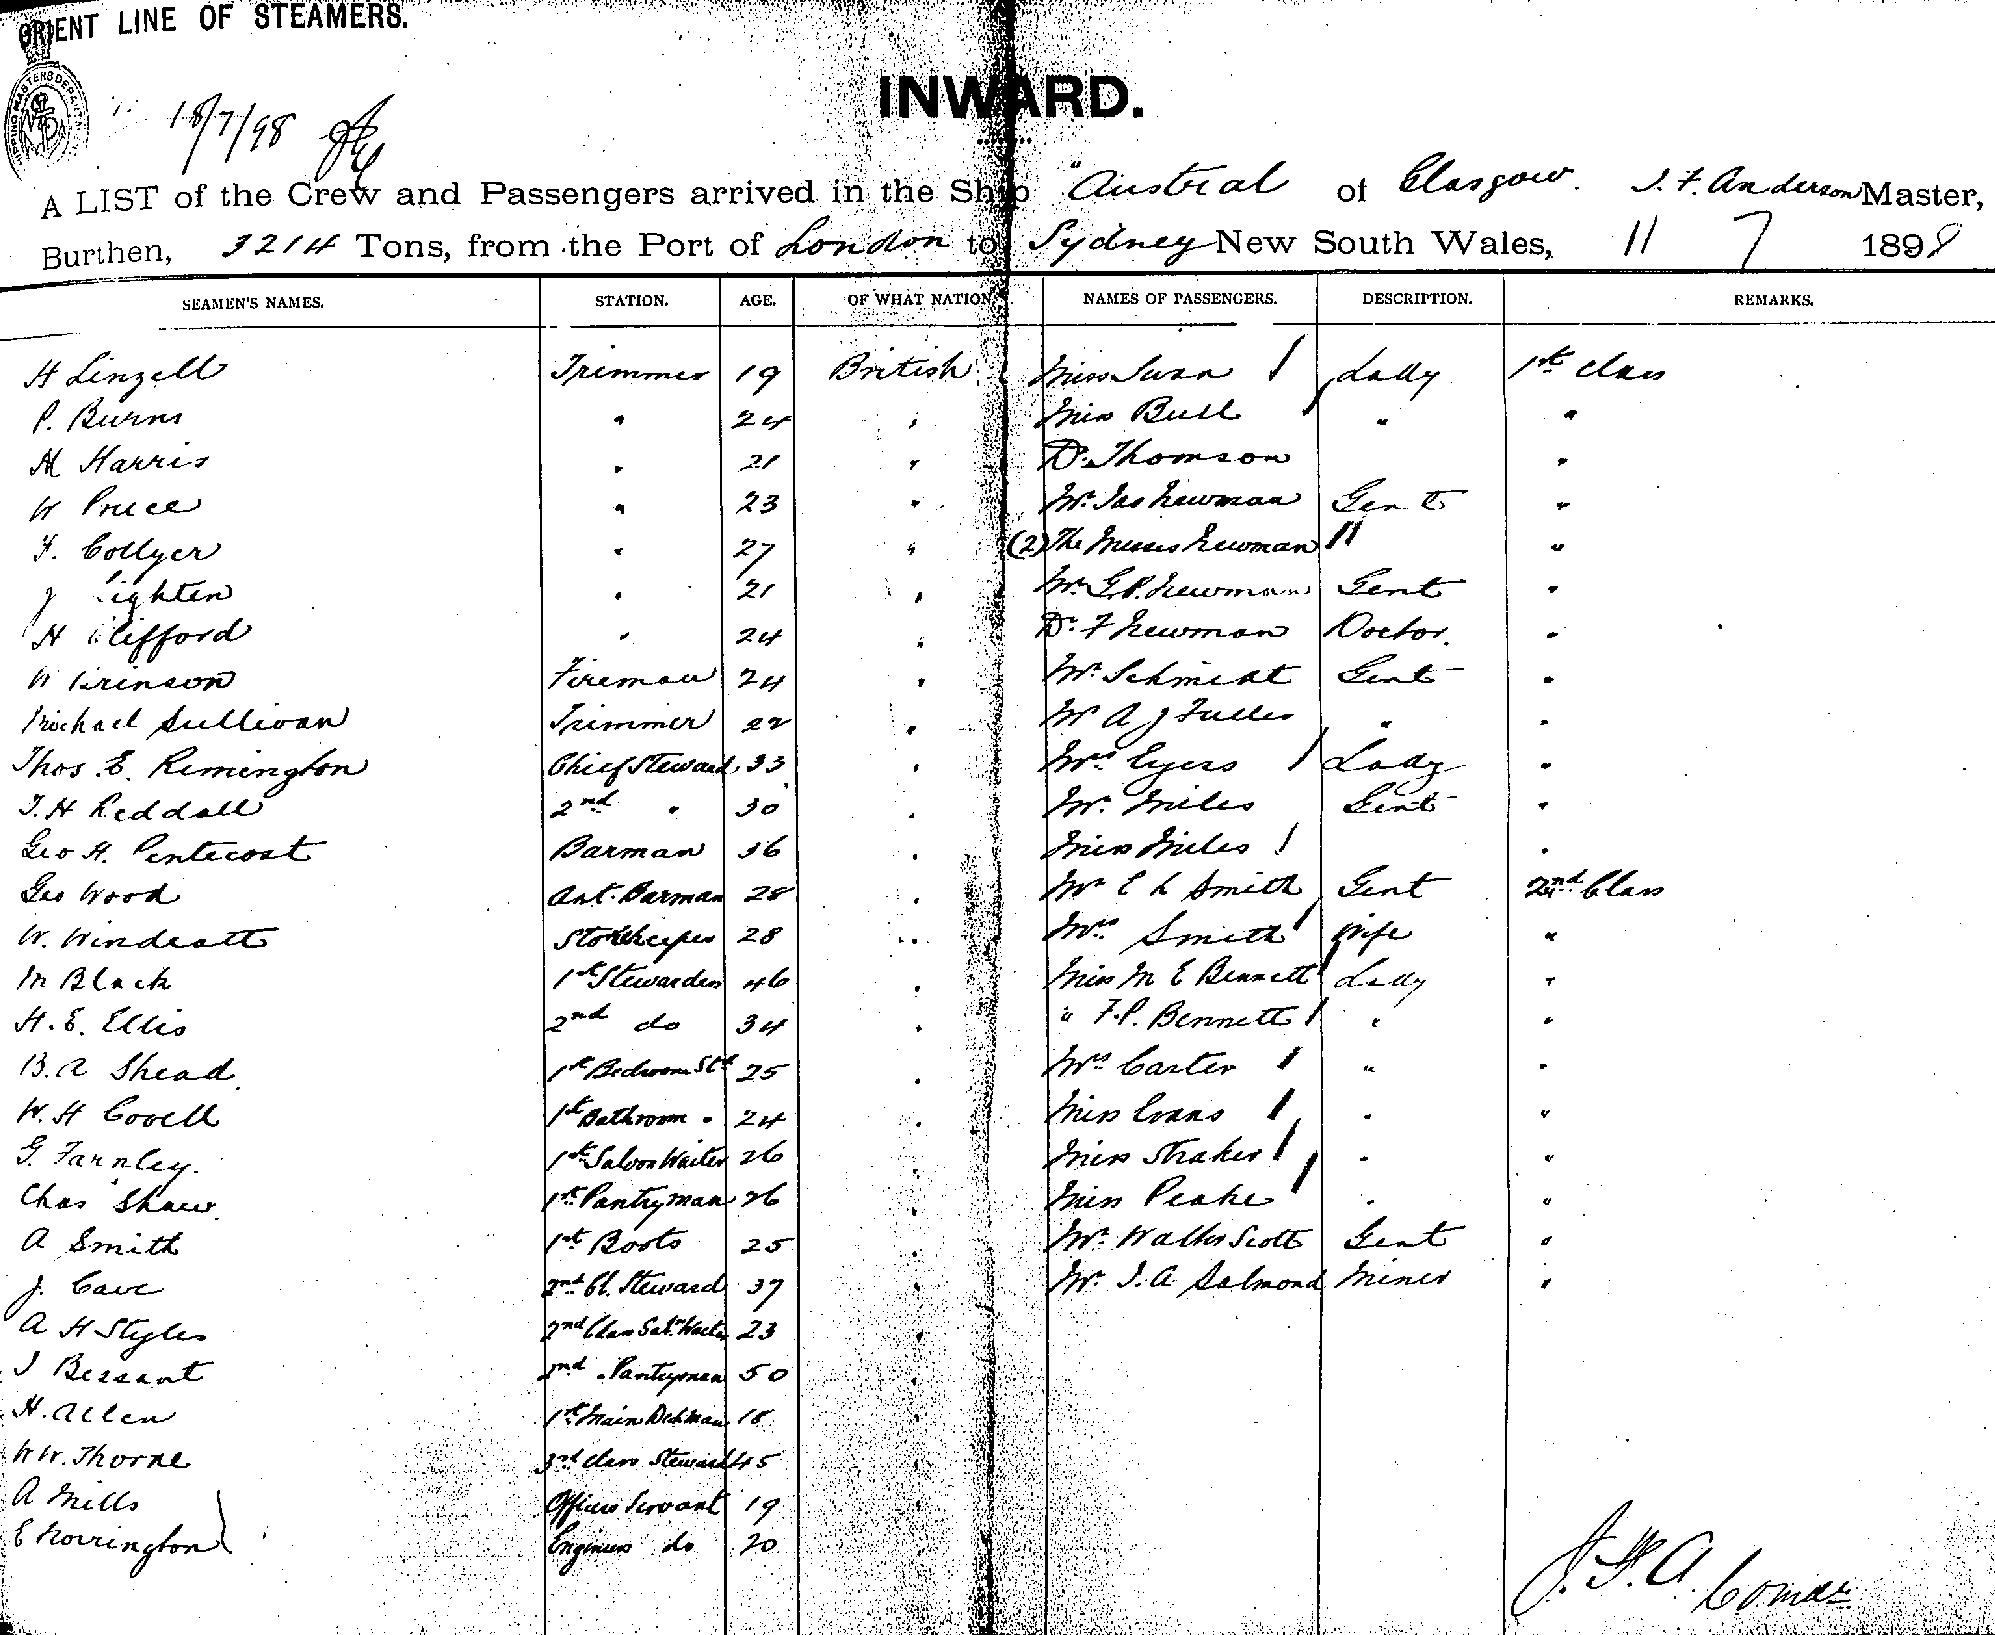 ORIENT LINE OF STEAMERS.
18/7/98
INWARD.
A LIST of the Crew and Passengers arrived in the Ship "Austral of Glasgow. J. F. Anderson Master,
Burthen, 3214 Tons, from the Port of London to Sydney New South Wales, 11 7 1898
SEAMEN'S NAMES. STATION. AGE. OF WHAT NATION. NAMES OF PASSENGERS. DESCRIPTION. REMARKS.
H Linzell Trimmer 19 British Miss Swan Lady 1st Class
P. Burns " 24 " Miss Bull " "
M Harris " 21 " Dr. Thomson "
W Pruce " 23 " Mr. Jas Newman Gent "
F. Collyer " 27 " (2) The Misses Newman "
J ighten " 21 " Mr. G. P. Newman Gent "
H Clifford " 24 " Dr. F Newman Doctor. "
W Brinson Fireman 24 " Mr. Schmidt Gent "
Michael Sullivan Trimmer 22 " Mr A J Fuller " "
Thos. E. Remington Chief Steward 33 " Mrs Eyers Lady "
T. H Reddall 2nd " 30 " Mr. Miles Gent "
Geo H. Pentecost Barman 36 " Miss Miles "
Geo Wood Asst. Barman 28 " Mr E L Smith Gent 2nd Class
W. Windeatt Storekeeper 28 " Mrs Smith Wife "
M Black 1st Stewardess 46 " Miss M E Bennett Lady "
H. E. Ellis 2nd do 34 " " F. P. Bennett " "
B. A Shead 1st Bedroom Std 25 " Mrs Carter " "
W. H Covell 1st Bathroom " 24 " Miss Evans " "
G. Farnley. 1st Saloon Waiter 26 " Miss Straker " "
Chas Shaw. 1st Pantryman 26 " Miss Peake " "
A Smith 1st Boots 25 " Mr. Walter Scott Gent "
J. Cave 2nd Cl. Steward 37 " Mr. J. A Salmond Miner "
A H Styles 2nd Class Saln. Waiter 23 "
J Bessant 2nd " Pantryman 50 "
H. Allen 1st Main Deckman 18 "
W W. Thorne 3rd Class Steward 45 "
A Mills Officers Servant 19
E Norrington Engineers do 20
J. F. A. Comdr